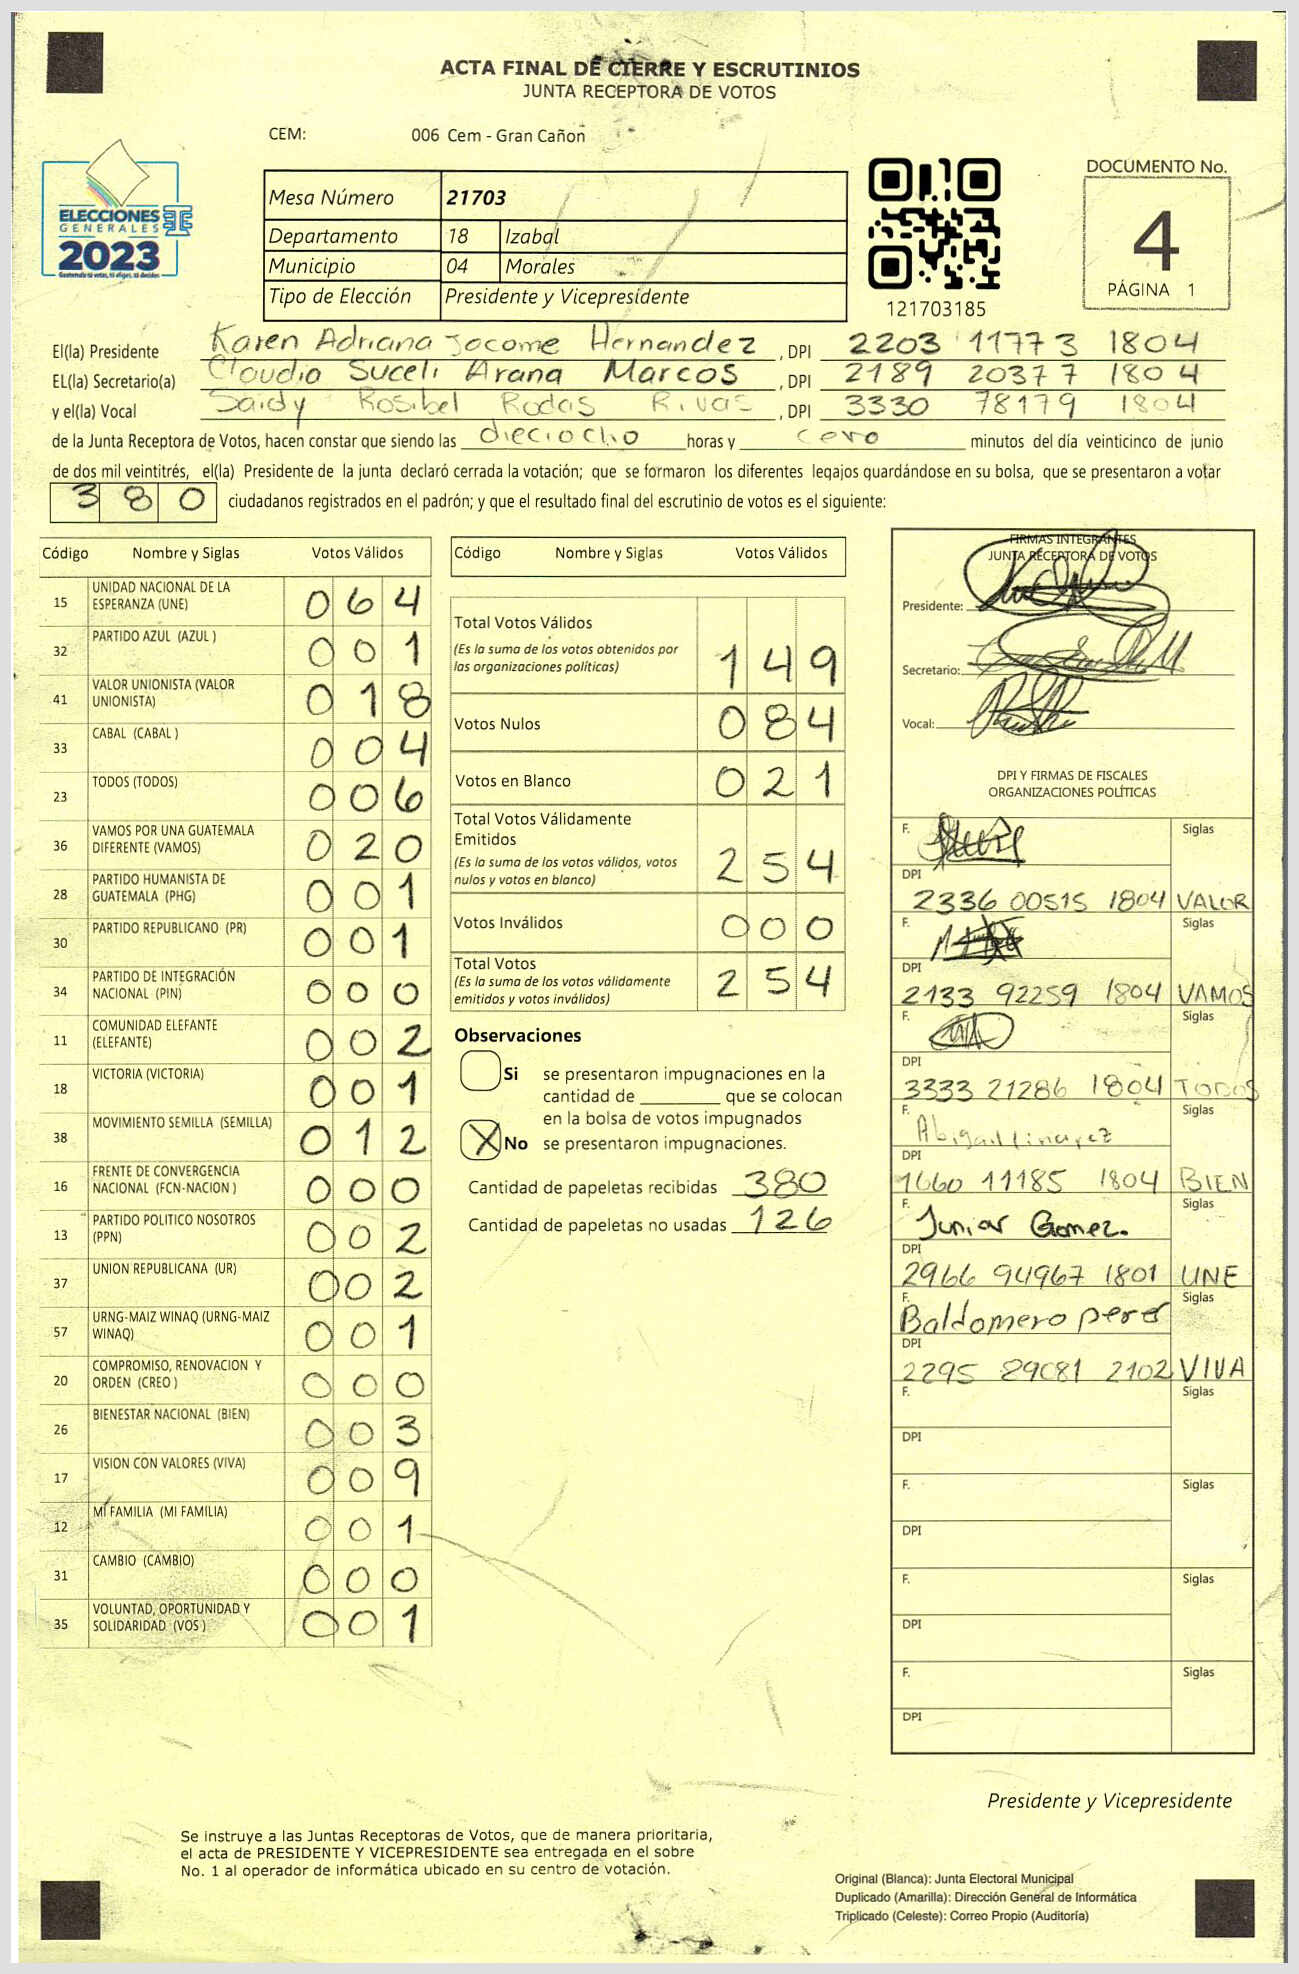 ACTA FINAL DE CIERRE Y ESCRUTINIOS
JUNTA RECEPTORA DE VOTOS
CEM: 006 Cem - Gran Cañon
ELECCIONES
GENERALES
2023
Guatemala tú votas, tú eliges, tú decides
Mesa Número 21703
Departamento 18 Izabal
Municipio 04 Morales
Tipo de Elección Presidente y Vicepresidente
121703185
DOCUMENTO No.
4
PÁGINA 1
El(la) Presidente Karen Adriana Jacome Hernandez , DPI 2203 11773 1804
EL(la) Secretario(a) Claudia Suceli Arana Marcos , DPI 2189 20377 1804
y el(la) Vocal Saidy Rosibel Rodas Rivas , DPI 3330 78179 1804
de la Junta Receptora de Votos, hacen constar que siendo las dieciocho horas y cero minutos del día veinticinco de junio
de dos mil veintitrés, el(la) Presidente de la junta declaró cerrada la votación; que se formaron los diferentes legajos guardándose en su bolsa, que se presentaron a votar
380 ciudadanos registrados en el padrón; y que el resultado final del escrutinio de votos es el siguiente:
Código Nombre y Siglas Votos Válidos
15 UNIDAD NACIONAL DE LA ESPERANZA (UNE) 064
32 PARTIDO AZUL (AZUL ) 001
41 VALOR UNIONISTA (VALOR UNIONISTA) 018
33 CABAL (CABAL ) 004
23 TODOS (TODOS) 006
36 VAMOS POR UNA GUATEMALA DIFERENTE (VAMOS) 020
28 PARTIDO HUMANISTA DE GUATEMALA (PHG) 001
30 PARTIDO REPUBLICANO (PR) 001
34 PARTIDO DE INTEGRACIÓN NACIONAL (PIN) 000
11 COMUNIDAD ELEFANTE (ELEFANTE) 002
18 VICTORIA (VICTORIA) 001
38 MOVIMIENTO SEMILLA (SEMILLA) 012
16 FRENTE DE CONVERGENCIA NACIONAL (FCN-NACION ) 000
13 PARTIDO POLITICO NOSOTROS (PPN) 002
37 UNION REPUBLICANA (UR) 002
57 URNG-MAIZ WINAQ (URNG-MAIZ WINAQ) 001
20 COMPROMISO, RENOVACION Y ORDEN (CREO ) 000
26 BIENESTAR NACIONAL (BIEN) 003
17 VISION CON VALORES (VIVA) 009
12 MI FAMILIA (MI FAMILIA) 001
31 CAMBIO (CAMBIO) 000
35 VOLUNTAD, OPORTUNIDAD Y SOLIDARIDAD (VOS ) 001
Código Nombre y Siglas Votos Válidos
Total Votos Válidos
(Es la suma de los votos obtenidos por
las organizaciones políticas) 149
Votos Nulos 084
Votos en Blanco 021
Total Votos Válidamente
Emitidos
(Es la suma de los votos válidos, votos
nulos y votos en blanco) 254
Votos Inválidos 000
Total Votos
(Es la suma de los votos válidamente
emitidos y votos inválidos) 254
Observaciones
Si se presentaron impugnaciones en la
cantidad de ________ que se colocan
en la bolsa de votos impugnados
X No se presentaron impugnaciones.
Cantidad de papeletas recibidas 380
Cantidad de papeletas no usadas 126
FIRMAS INTEGRANTES
JUNTA RECEPTORA DE VOTOS
Presidente:
Secretario:
Vocal:
DPI Y FIRMAS DE FISCALES
ORGANIZACIONES POLÍTICAS
F. Siglas
DPI
2336 00515 1804 VALOR
F. Siglas
DPI
2133 92259 1804 VAMOS
F. Siglas
DPI
3333 21286 1804 TODOS
F. Abigail Siglas
DPI
1660 11185 1804 BIEN
F. Junior Gomez. Siglas
DPI
2966 94967 1801 UNE
F. Baldomero perez Siglas
DPI
2295 29081 2102 VIVA
F. Siglas
DPI
F. Siglas
DPI
F. Siglas
DPI
F. Siglas
DPI
Presidente y Vicepresidente
Se instruye a las Juntas Receptoras de Votos, que de manera prioritaria,
el acta de PRESIDENTE Y VICEPRESIDENTE sea entregada en el sobre
No. 1 al operador de informática ubicado en su centro de votación.
Original (Blanca): Junta Electoral Municipal
Duplicado (Amarilla): Dirección General de Informática
Triplicado (Celeste): Correo Propio (Auditoría)